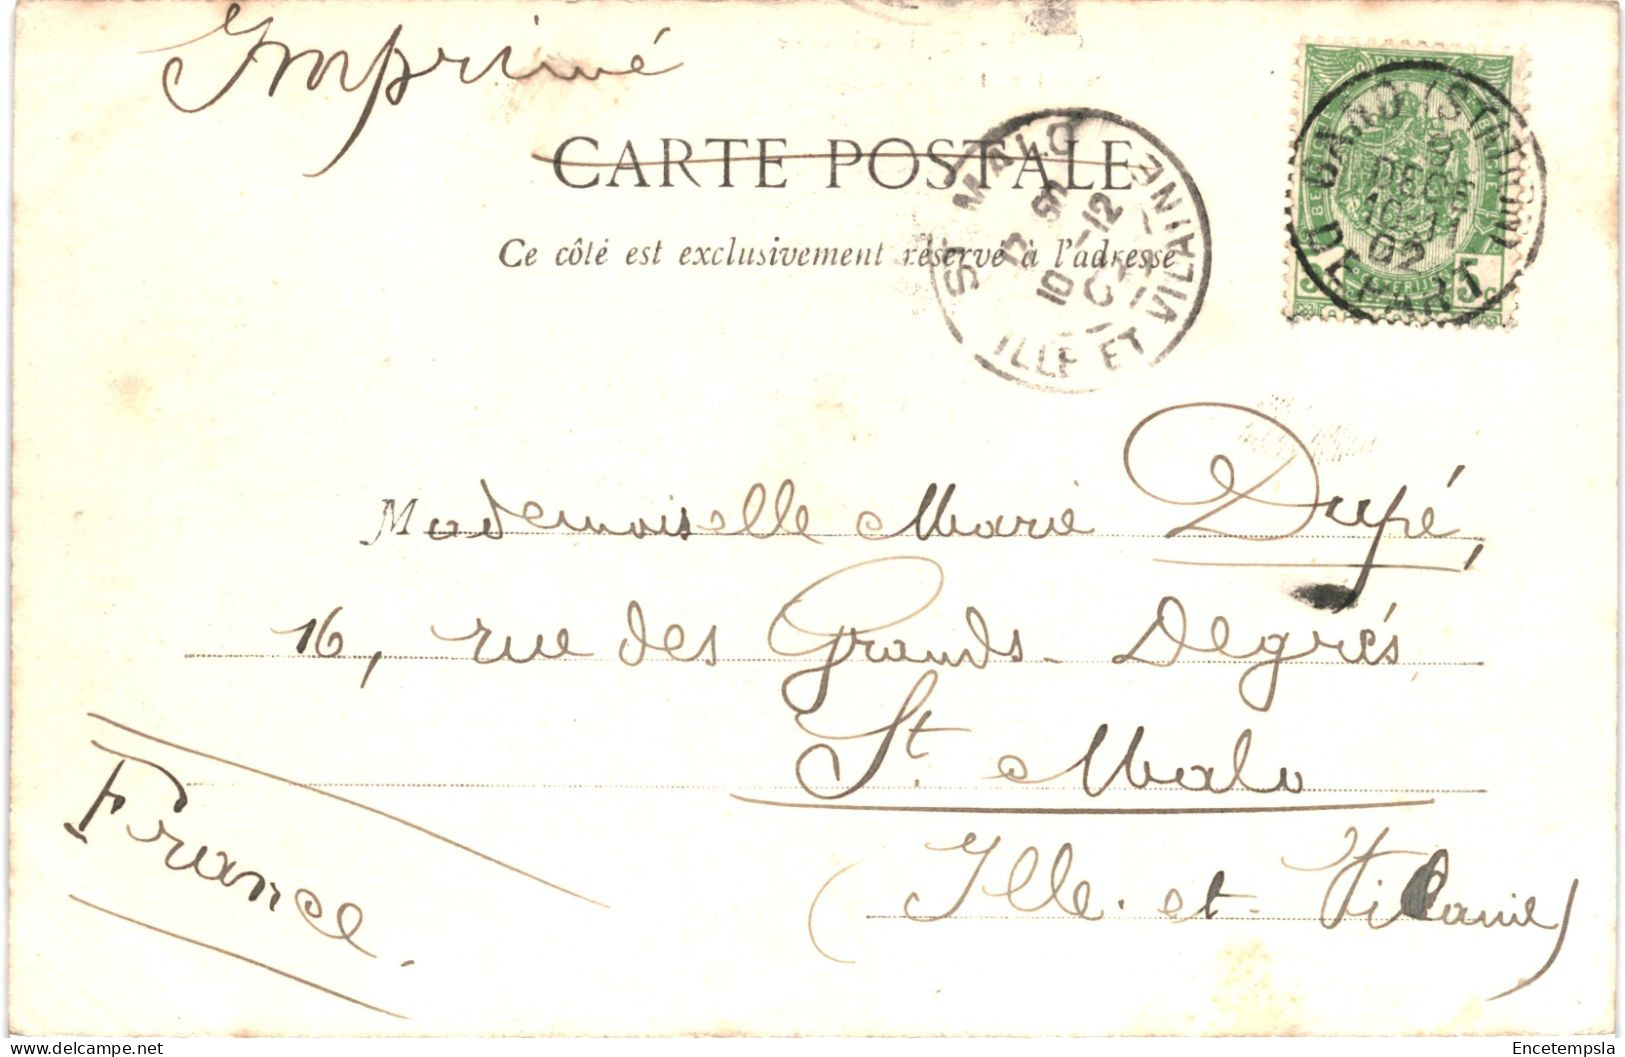 Imprimé
CARTE POSTALE
Ce côté est exclusivement réservé à l'adresse
ST MALO
10 - 12
ILLE ET VILAINE
GAND (STATION)
DECE
02
DEPART
5
Mademoiselle Marie Dupé,
16, rue des Grands-Degrés
St. Malo
(Ille-et-Vilaine)
France.
Encetempsla